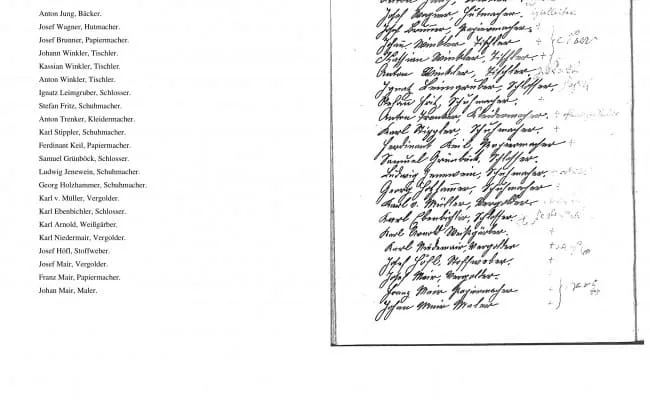 Anton Jung, Bäcker.
Josef Wagner, Hutmacher.
Josef Brunner, Papiermacher.
Johann Winkler, Tischler.
Kassian Winkler, Tischler.
Anton Winkler, Tischler.
Ignatz Leimgruber, Schlosser.
Stefan Fritz, Schuhmacher.
Anton Trenker, Kleidermacher.
Karl Stippler, Schuhmacher.
Ferdinant Keil, Papiermacher.
Samuel Grünböck, Schlosser.
Ludwig Jenewein, Schuhmacher.
Georg Holzhammer, Schuhmacher.
Karl v. Müller, Vergolder.
Karl Ebenbichler, Schlosser.
Karl Arnold, Weißgärber.
Karl Niedermair, Vergolder.
Josef Höfl, Stoffweber.
Josef Mair, Vergolder.
Franz Mair, Papiermacher.
Johan Mair, Maler.
Josef Wagner Hutmacher.
Josef Brunner, Papiermacher.
Johan Winkler Tischler
Kassian Winkler, Tischler.
Anton Winkler, Tischler.
Ignatz Leimgruber, Schlosser.
Stefan Fritz, Schuhmacher.
Anton Trenker, Kleidermacher.
Karl Stippler, Schuhmacher.
Ferdinant Keil, Papiermacher
Samuel Grünböck, Schlosser.
Ludwig Jenewein, Schuhmacher.
Georg Holzhammer, Schuhmacher
Karl v. Müller, Vergolder.
Karl Ebenbichler, Schlosser
Karl Arnold Weißgärber.
Karl Niedermair, Vergolder
Josef Höfl. Stoffweber.
Josef Mair, Vergolder.
Franz Mair Papiermacher
Johan Mair Maler